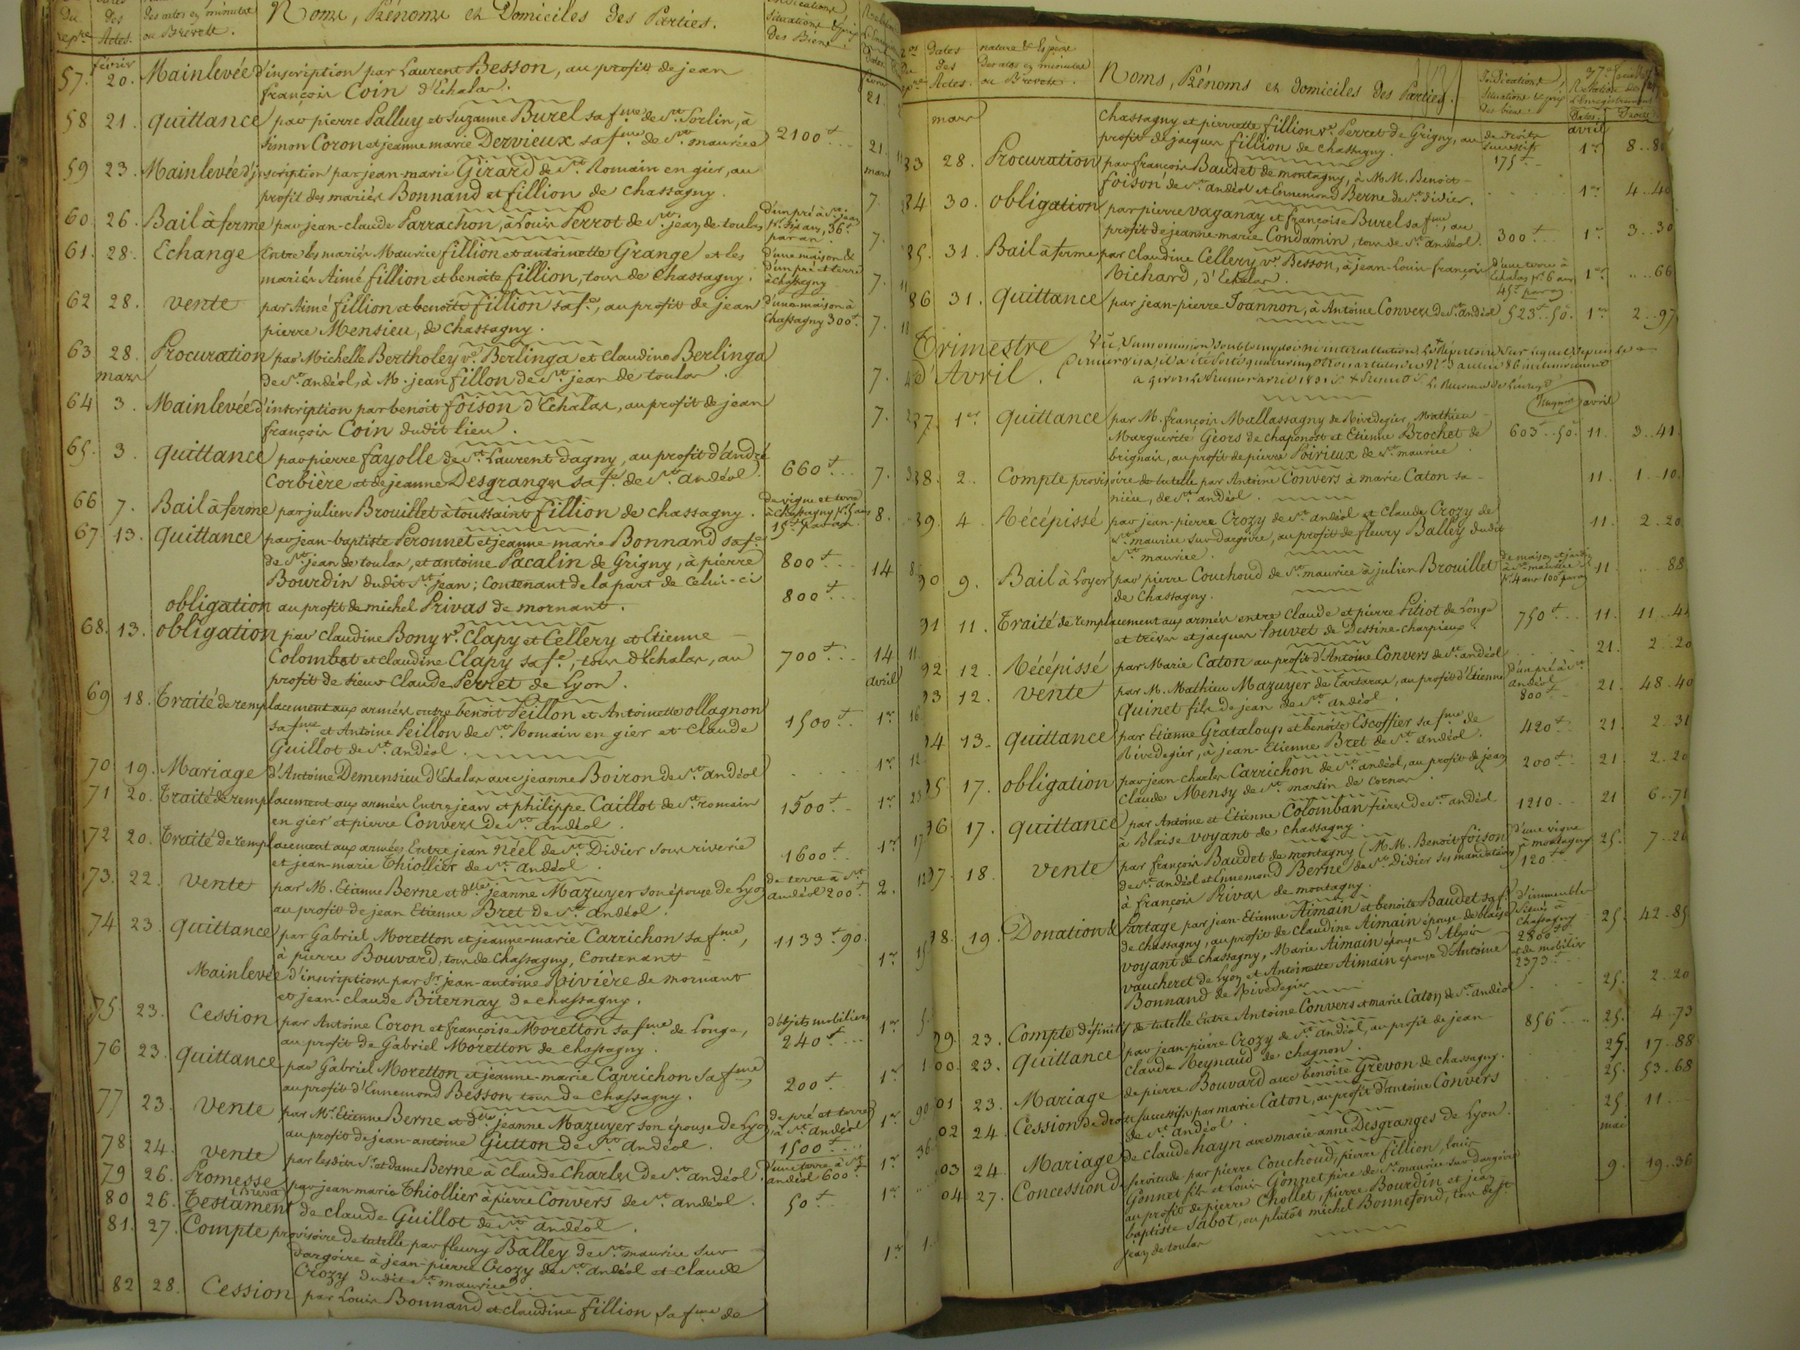 Noms, Prénoms et Domiciles des Parties.
des actes en minutes
ou Brevets.
Actes.
février
57. 20. Mainlevée d'inscription par Laurent Besson, au profit de jean
françois Coin d'Echalas. 21.
58 21. quittance par pierre Palluy et Suzanne Burel sa fme de St. Sorlin, à
Simon Coron et jeanne marie Dervieux sa fme de St. maurice 2100tt 21.
mars
59 23. Mainlevée d'inscription par jean-marie Girard de St. Romain en gier, au
profit des mariés Bonnand et fillion de chassagny. 7.
60 26. Bail à ferme par jean-claude Parrachon, à Louis Perrot de St. jean de toulas d'un pré à St. jean
par an. 7.
61. 28. Echange Entre les mariés Maurice fillion et antoinette Grange et les d'une maison &
d'un pré et terre
mariés Aimé fillion et benoite fillion, tous de chassagny. à chassagny 7.
62 28. vente par Aimé fillion et benoite fillion sa fe, au profit de jean d'une maison à
pierre Mensieu, de chassagny. chassagny 300tt. 7.
63 28. Procuration par Michelle Bertholey ve. Berlinga et Claudine Berlinga
de St. andéol, à M. jean fillon de St. jean de toulas. 7.
mars
64 3. Mainlevée d'inscription par benoit foison d'Echalas, au profit de jean 7.
françois Coin dudit lieu.
65. 3. quittance par pierre fayolle de St. Laurent-dagny, au profit d'andré
Corbière et de jeanne Desgranges sa fe. de St. andéol. 660tt. 7.
66 7. Bail à ferme par julien Brouillet à toussaint fillion de chassagny. de vigne et terre
à chassagny pr. 5 ans
15tt par an. 8.
67. 13. quittance par jean-baptiste Perounet et jeanne-marie Bonnand sa fe
de St. jean de toulas, et antoine Pacalin de Grigny, à pierre 800tt. 14
Bourdin dudit St. jean; Contenant de la part de Celui-ci
obligation au profit de michel Privas de mornant. 800tt
68. 13. obligation par Claudine Bony ve. Clapy et Cellery et Etienne
Colombet et claudine Clapy sa fe, tous d'Echalas, au 700tt. 14
profit de sieur Claude Perret de Lyon.
avril
69 18. Traité de remplacement aux armées entre benoit Peillon et Antoinette ollagnon
sa fme et Antoine Peillon de St. Romain en gier et Claude 1500tt. 1er
Guillot de St. andéol.
70 19. Mariage d'Antoine Demensieu d'Echalas avec jeanne Boiron de St. andéol 1er
71 20. Traité de remplacement aux armées Entre jean et philippe Caillot de St. romain
en gier et pierre Convers de St. andéol. 1500tt. 1er
72 20. Traité de remplacement aux armées Entre jean Néel de St. Didier sous riverie
et jean-marie Thiollier de St. andéol. 1600tt. 1er
73. 22. vente par M. Etienne Berne et dlle. jeanne Mazuyer son épouse de Lyon de terre à St.
au profit de jean Etienne Bret de St. andéol. andéol 200tt 2.
74 23. quittance par Gabriel Moretton et jeanne-marie Carrichon sa fme, 1133tt 90.
à pierre Bouvard, tous de chassagny, Contenant 1er
Mainlevée d'inscription par Sr. jean-antoine Rivière de mornant
et jean-claude Biternay de chassagny.
75 23. Cession par Antoine Coron et françoise Moretton sa fme de Longe, d'objets mobiliers
au profit de Gabriel Moretton de chassagny. 240tt. 1er
76 23. quittance par Gabriel Moretton et jeanne-marie Carrichon sa fme
au profit d'Ennemond Besson tous de chassagny. 200tt. 1er
77 23. vente par Mr. Etienne Berne et dlle jeanne Mazuyer son épouse de Lyon de pré et terre
au profit de jean-antoine Gutton de St. andéol. à St. andéol
1500tt. 1er
78 24. vente par lesdits Sr. et dame Berne à Claude Charles de St. andéol. d'une terre à St.
andéol 600tt. 1er
79 26. Promesse par jean-marie Thiollier à pierre Convers de St. andéol. 50tt. 1er
80 26. Testament de claude Guillot de St. andéol.
81. 27. Compte provisoire de tutelle par fleury Balley de St. maurice sur
dargoire à jean-pierre Crozy de St. andéol et Claude 1er
Crozy dudit St. maurice.
82 28. Cession par Louis Bonnand et claudine fillion sa fme de
Dates
des
Actes.
nature & Espèce
des actes en minutes
ou Brevets.
Noms, Prénoms et domiciles des Parties.
Indications
Situations et prix
des biens
mars
chassagny et pierrette fillion ve. Perret de Grigny, au de droits avril
profit de jacques fillion de chassagny. successifs
175tt. 1er 8..80
83 28. Procuration par françois Baudet de montagny, à M.M. Benoit-
foison de St. andéol et Ennemond Berne de St. didier. 1er 4..40
84 30. obligation par pierre vaganay et françoise Burel sa fme, au
profit de jeanne-marie Condamin, tous de St. andéol. 300tt. 1er 3..30
85. 31. Bail à ferme par claudine Cellery ve. Besson, à jean-Louis-françois d'une terre à
Richard, d'Echalas. Echalas, pr. 6 ans
45tt. par an. 1er ....66
86 31. Quittance par jean-pierre Joannon, à Antoine Convers de St. andéol 523tt..50. 1er 2..97
Trimestre
d'Avril.
87 1er quittance par M. françois Mallassagny de Rivedegier, Mathieu avril
Marguerite Géors de chaponost et Etienne Brochet de 603tt..50. 11. 3..41.
brignais, au profit de pierre Poirieux de St. maurice.
88. 2. Compte provisoire de tutelle par Antoine Convers à marie Caton sa- 11. 1..10.
nièce, de St. andéol.
89. 4. Récépissé par jean-pierre Crozy de St. andéol et Claude Crozy de 11. 2..20
St. maurice sur dargoire, au profit de fleury Balley dudit
St. maurice.
90 9. Bail à Loyer par pierre Couchoud de St. maurice à julien Brouillet de maison et jardin
à St. maurice
pr. 4 ans 100tt par an 11 ....88
de chassagny.
91 11. Traité de remplacement aux armées entre Claude et pierre Pitiot de Longe 750tt. 11. 11..44
et trèves et jacques huvet de Dessine-charpieux.
92 12. Récépissé par Marie Caton au profit d'Antoine Convers de St. andéol 21. 2..20
93 12. vente par M. Mathieu Mazuyer de Tartaras, au profit d'Etienne d'un pré à St.
andéol
800tt 21. 48..40
Quinet fils de jean de St. andéol.
94 13. quittance par Etienne Grataloup et benoite Escoffier sa fme de 420tt 21 2..31
Rivedegier, à jean-Etienne Bret de St. andéol.
95 17. obligation par jean charles Carrichon de St. andéol, au profit de jean 200tt. 21 2..20
Claude Mensy de St. martin de Cornas.
96 17. quittance par Antoine et Etienne Colomban frères de St. andéol 1210... 21 6..71
à Blaise voyant de chassagny.
97. 18. vente par françois Baudet de montagny (M.M. Benoit foison d'une vigne
à montagny
120tt 25. 7..26
de St. andéol et Ennemond Berne de St. didier ses mandataires
à françois Privas de montagny.
98. 19. Donation & Partage par jean-Etienne Aimain et benoite Baudet sa fe. d'immeubles
situés à
chassagny
2800tt
& de mobilier
2373tt 25. 42..85
de chassagny, au profit de Claudine Aimain épouse de blaise
voyant de chassagny, Marie Aimain épouse d'Alexis
vaucheret de Lyon et Antoinette Aimain épouse d'Antoine
Bonnand de Rivedegier
99. 23. Compte définitif de tutelle Entre Antoine Convers et marie Caton de St. andéol 25. 2..20
100. 23. quittance par jean-pierre Crozy de St. andéol, au profit de jean 856tt. 25. 4..73
claude Reynaud de chagnon.
101 23. Mariage de pierre Bouvard avec benoite Grevon de chassagny. 25. 17..88
102 24. Cession de droits successifs par marie Caton, au profit d'antoine Convers 25. 53..68
de St. andéol.
103 24. Mariage de Claude hayn avec marie-anne Desgranges de Lyon. 25 11...
mai
104. 27. Concession de servitude par pierre Couchoud, pierre fillion, louis 9. 19..36
Gonnet fils et Louis Gonnet père de St. maurice sur dargoire
au profit de pierre Chollet, pierre Bourdin et jean
baptiste Sabot, ou plutôt michel Bonnefond, tous de St
jean de toulas